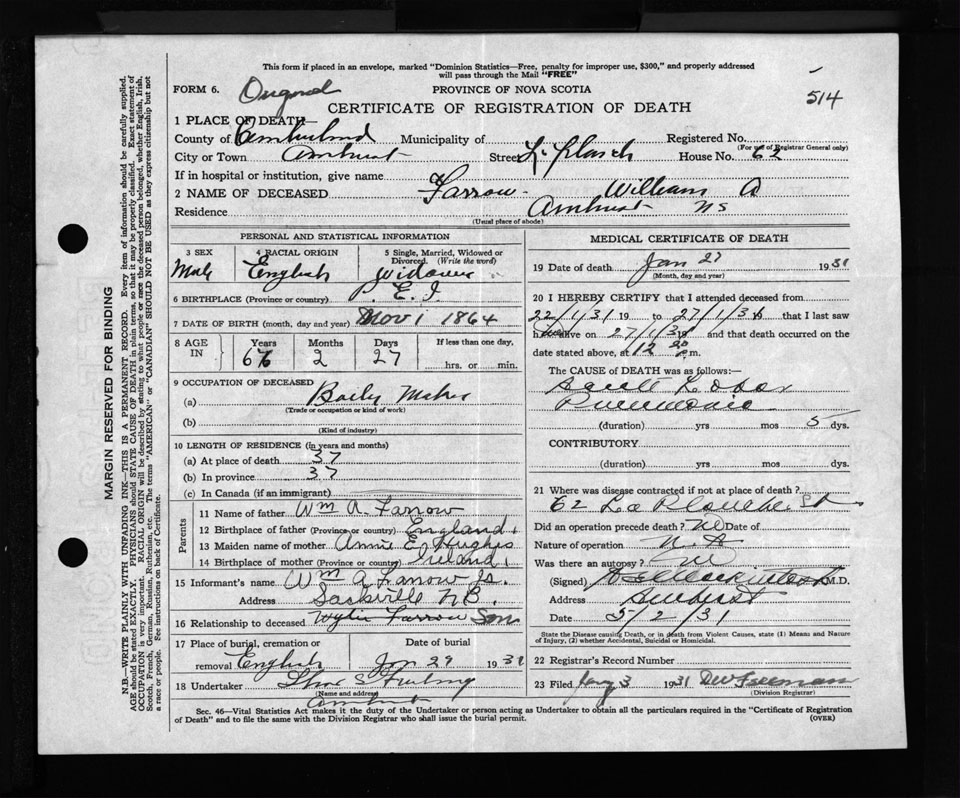 This form if placed in an envelope, marked "Dominion Statistics—Free, penalty for improper use, $300," and properly addressed
will pass through the Mail "FREE"
FORM 6. Original PROVINCE OF NOVA SCOTIA
514
CERTIFICATE OF REGISTRATION OF DEATH
1 PLACE OF DEATH—
County of Cumberland Municipality of Registered No.
(For use of Registrar General only)
City or Town Amherst Street House No. 62
If in hospital or institution, give name
2 NAME OF DECEASED Farrow - William A
Residence Amherst NS
(Usual place of abode)
PERSONAL AND STATISTICAL INFORMATION
3 SEX 4 RACIAL ORIGIN 5 Single, Married, Widowed or
Divorced. (Write the word)
Male English Widower
6 BIRTHPLACE (Province or country) P. E. I.
7 DATE OF BIRTH (month, day and year) Nov 1 1864
8 AGE IN Years Months Days If less than one day,
66 2 27 hrs. or min.
9 OCCUPATION OF DECEASED
(a) Maker
(Trade or occupation or kind of work)
(b)
(Kind of industry)
10 LENGTH OF RESIDENCE (in years and months)
(a) At place of death 37
(b) In province 37
(c) In Canada (if an immigrant)
Parents
11 Name of father Wm A. Farrow
12 Birthplace of father (Province or country) England
13 Maiden name of mother Annie E. Hughes
14 Birthplace of mother (Province or country) Ireland
15 Informant's name Wm A Farrow Jr.
Address Sackville N B.
16 Relationship to deceased Wylie Farrow Son
17 Place of burial, cremation or Date of burial
removal English Jan 29 1931
18 Undertaker
(Name and address)
Amherst
MEDICAL CERTIFICATE OF DEATH
19 Date of death Jan 27 1931
(Month, day and year)
20 I HEREBY CERTIFY that I attended deceased from
22/1/31 19 to 27/1/31 that I last saw
h alive on 27/1/31 and that death occurred on the
date stated above, at 12 p.m.
The CAUSE of DEATH was as follows:—
Acute Lobar
Pneumonia
(duration) yrs mos 5 dys.
CONTRIBUTORY
(duration) yrs mos dys.
21 Where was disease contracted if not at place of death?
62 La Planche St
Did an operation precede death? No Date of
Nature of operation
Was there an autopsy? No
(Signed) M.D.
Address Amherst
Date 5/2/31
State the Disease causing Death, or in death from Violent Causes, state (1) Means and Nature
of Injury, (2) whether Accidental, Suicidal or Homicidal.
22 Registrar's Record Number
23 Filed 3 1931 D W Freeman
(Division Registrar)
Sec. 46—Vital Statistics Act makes it the duty of the Undertaker or person acting as Undertaker to obtain all the particulars required in the "Certificate of Registration
of Death" and to file the same with the Division Registrar who shall issue the burial permit. (OVER)
MARGIN RESERVED FOR BINDING
N.B.—WRITE PLAINLY WITH UNFADING INK—THIS IS A PERMANENT RECORD. Every item of information should be carefully supplied.
AGE should be stated EXACTLY. PHYSICIANS should STATE CAUSE OF DEATH in plain terms, so that it may be properly classified. Exact statement of
OCCUPATION is very important. RACIAL ORIGIN will be described by stating to what people or race the deceased person belonged, whether English, Irish,
Scotch, French, German, Russian, Ruthenian, etc. The terms "AMERICAN" or "CANADIAN" SHOULD NOT BE USED as they express citizenship but not
a race or people. See instructions on back of Certificate.